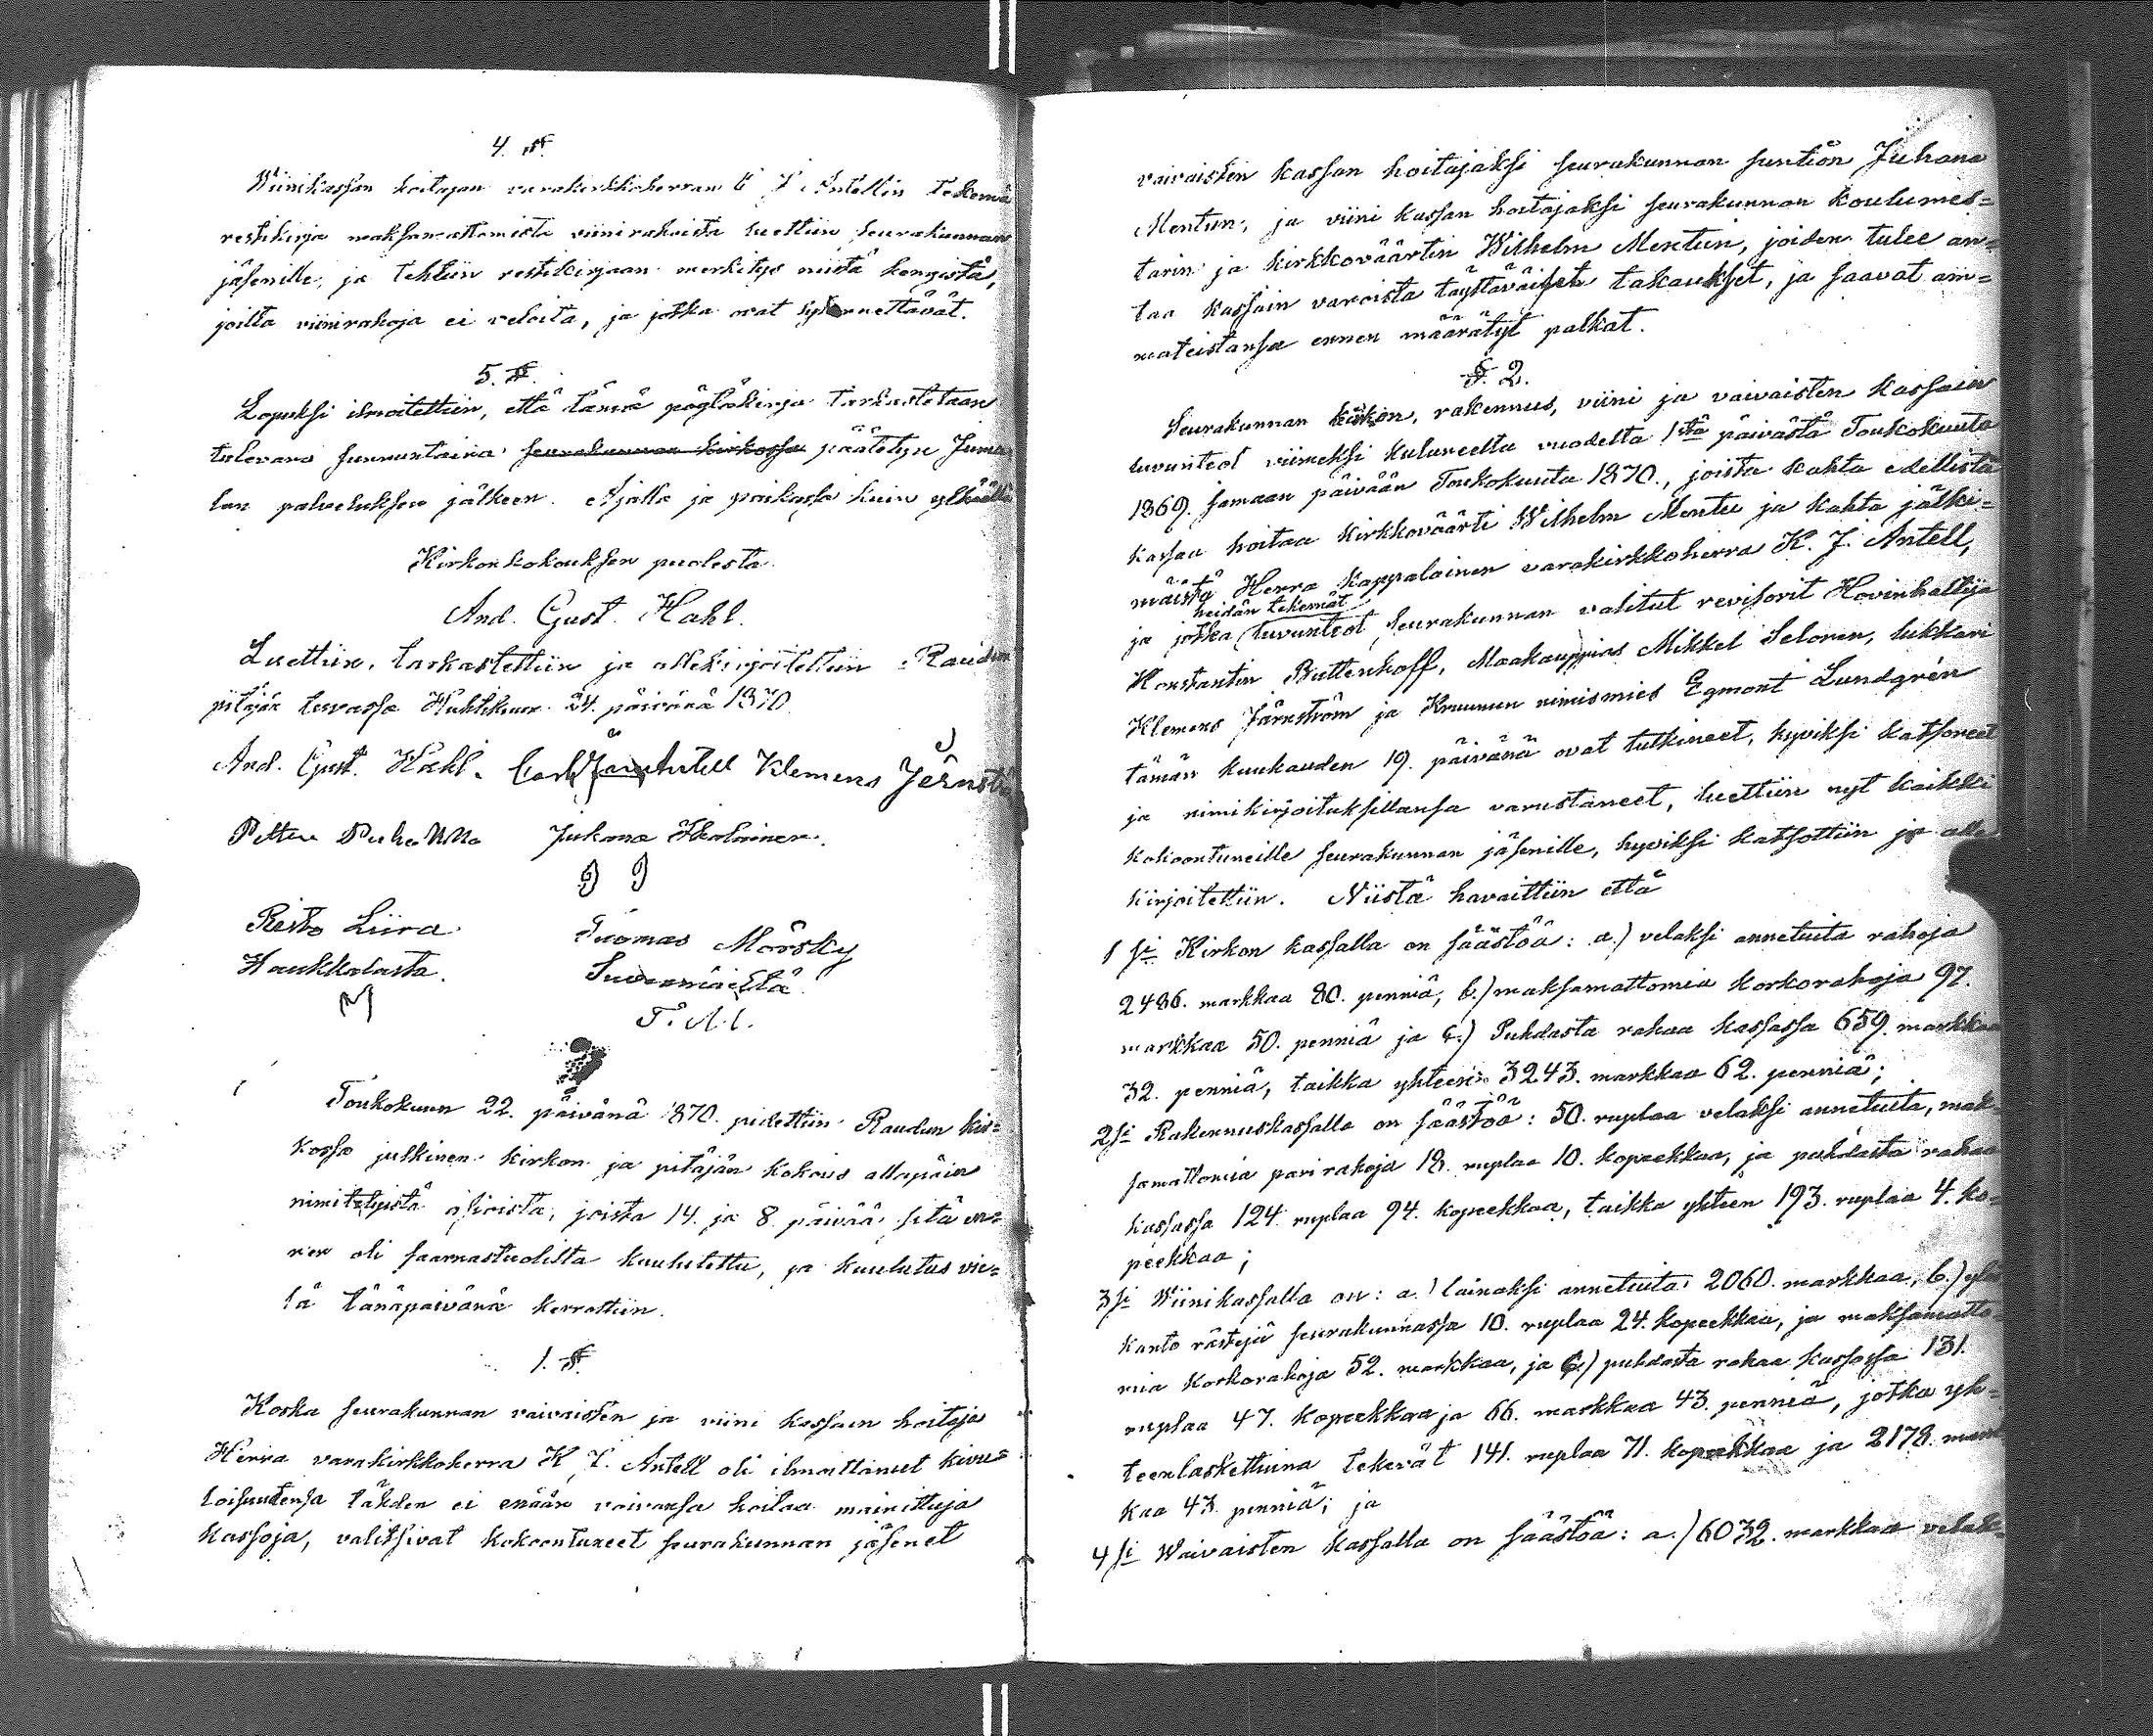 4. §.
Wiinikassan hoitajan varakirkkoherran C J Antellin tekemä
restikirja maksamattomista viinirahoista luettiin seurakunnan
jäsenille, ja tehtiin restikirjaan merkitys niistä hengistä,
joilta viinirahoja ei veloita, ja jotka ovat
5. §.
Lopuksi ilmoitettiin, että tämä pöytäkirja tarkastetaan
tulevana sunnuntaina seurakunnan kirkossa päätetyn Juma
lan palveluksen jälkeen. Ajalla ja paikassa kuin ylhäällä
Kirkonkokouksen puolesta.
And. Gust. Hahl.
Luettiin, tarkastettiin ja allekirjoitettiin Raudun
pitäjän tuvassa Huhtikuun 24. päivänä 1870.
And. Gust. Hahl. Carl Antell Klemens Järnströ
Juhana Ikolainen.
Risto Liira
Haukkalasta.
Tuomas Mörsky
Suvenmäeltä
T. M. l.
Toukokuun 22. päivänä 1870. pidettiin Raudun kir=
kossa julkinen kirkon ja pitäjän kokous allapäin
nimitetyistä asioista, joista 14. ja 8. päivää sitä en=
nen oli saarnastuolista kuulutettu, ja kuulutus vie=
lä tänäpäivänä kerrottiin.
1. §.
Koska seurakunnan vaivaisten ja viini kassain hoitaja
Herra varakirkkoherra K. J. Antell oli ilmoittanut kivu=
loisuutensa tähden ei enään voivansa hoitaa mainittuja
kassoja, valitsivat kokoontuneet seurakunnan jäsenet
vaivaisten kassan hoitajaksi seurakunnan suntion Juhana
Mentun, ja viini kassan hoitajaksi seurakunnan koulumes=
tarin ja kirkkoväärtin Wilhelm Mentun, joiden tulee an=
taa kassain varoista täyttäväiset takaukset, ja saavat am=
mateistansa ennen määrätyt palkat.
§. 2.
Seurakunnan kirkon, rakennus, viini ja vaivaisten kassain
luvunteot viimeksi kuluneelta vuodelta 1stä päivästä Toukokuuta
1869. samaan päivään Toukokuuta 1870., joista kahta edellistä
kassaa hoitaa kirkkoväärti Wilhelm Mentu ja kahta jälki=
mäistä Herra kappalainen varakirkkoherra K. J. Antell,
heidän tekemät
ja jotka luvunteot seurakunnan valitut revisorit Hovinhaltija
Konstantin Buttenhoff, Maakauppias Mikkel Selonen, lukkari
Klemens Järnström ja Kruunun nimismies Egmont Lundgrén
tämän kuukauden 19. päivänä ovat tutkineet, hyviksi katsoneet
ja nimikirjoituksillansa varustaneet, luettiin nyt kaikki
kokoontuneille seurakunnan jäsenille, hyviksi katsottiin ja alle
kirjoitettiin. Niistä havaittiin että
1 si Kirkon kassalla on säästöä: a.) velaksi annetuita rahoja
2486. markkaa 80. penniä, b.) maksamattomia korkorahoja 97.
markkaa 50. penniä ja c.) Puhdasta rahaa kassassa 659. markkaa
32. penniä, taikka yhteen 3243. markkaa 62. penniä;
2 si Rakennuskassalla on säästöä: 50. ruplaa velaksi annetuita, mak=
samattomia parirahoja 18. ruplaa 10. kopeekkaa, ja puhdasta rahaa
kassassa 124. ruplaa 94. kopeekkaa, taikka yhteen 193. ruplaa 4. ko=
peekkaa;
3 si Wiinikassalla on: a.) lainaksi annetuita 2060. markkaa, b.) ylös
kanto rästejä seurakunnassa 10. ruplaa 24. kopeekkaa, ja maksamatto=
mia korkorahoja 52. markkaa, ja c.) puhdasta rahaa kassassa 131.
ruplaa 47. kopeekkaa ja 66. markkaa 43. penniä, jotka yh=
teenlaskettuina tekevät 141. ruplaa 71. kopeekkaa ja 2178. mark
kaa 43. penniä; ja
4 si Waivaisten kassalla on säästöä: a.) 6032. markkaa velak=